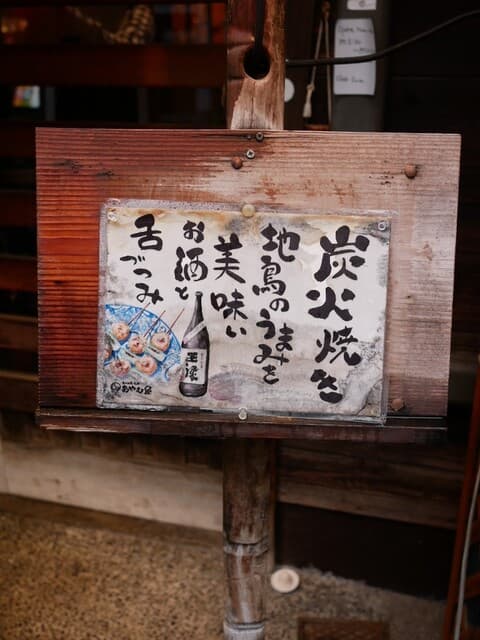 炭火焼き
地鳥のうまみを
美味い
お酒と
舌づつみ
王祿